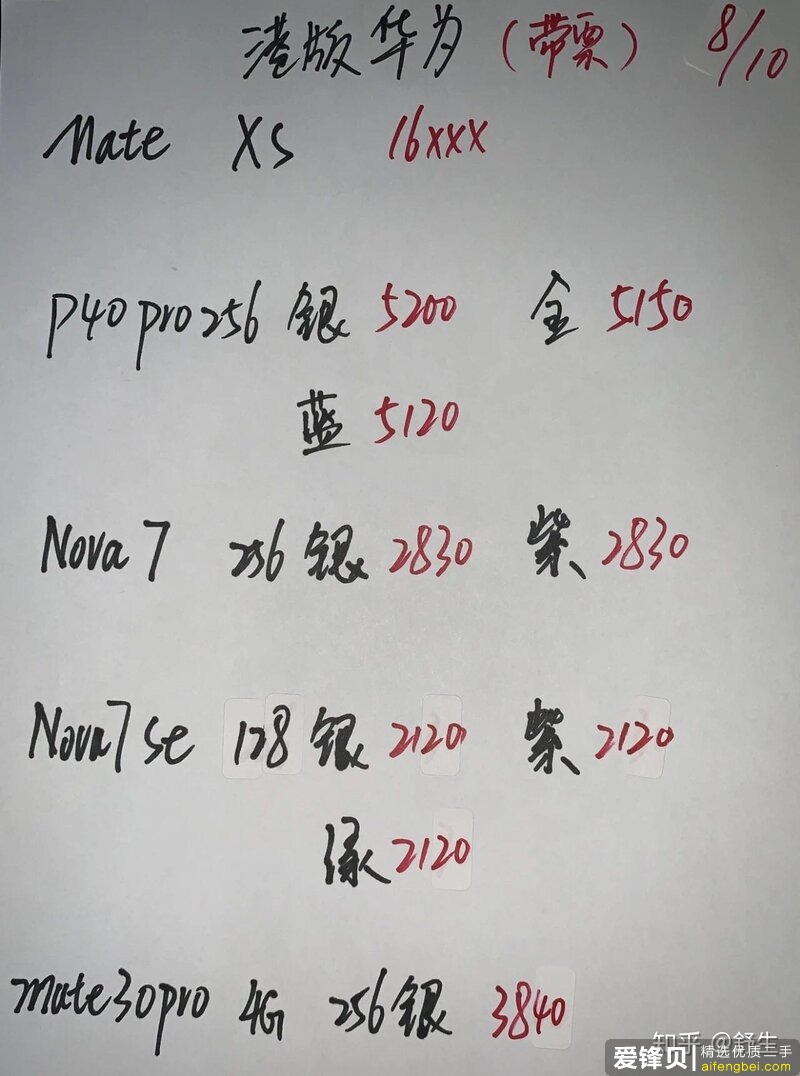 港版华为（带票） 8/10
Mate XS 16xxx
P40 pro 256 银 5200 金 5150
蓝 5120
Nova 7 256 银 2830 紫 2830
Nova7 se 128 银 2120 紫 2120
绿 2120
mate30pro 4G 256 银 3840
知乎 @舒生
爱锋贝 精选优质二手
aifengbei.com